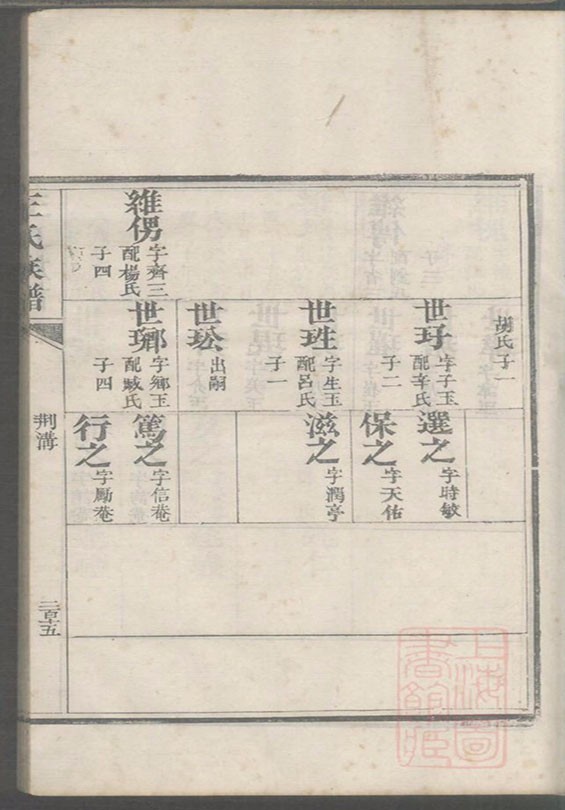 胡氏子一
世玗
字子玉
配辛氏
子二
世珄
字生玉
配呂氏
子一
世玜
出嗣
維僗
字齊三
配楊氏
子四
世瓡
字鄉玉
配臧氏
子四
選之
字時敏
保之
字天佑
滋之
字潤亭
篤之
字信菴
行之
字勵菴
王氏族譜
荆溝
二百十五
上海圖書館藏